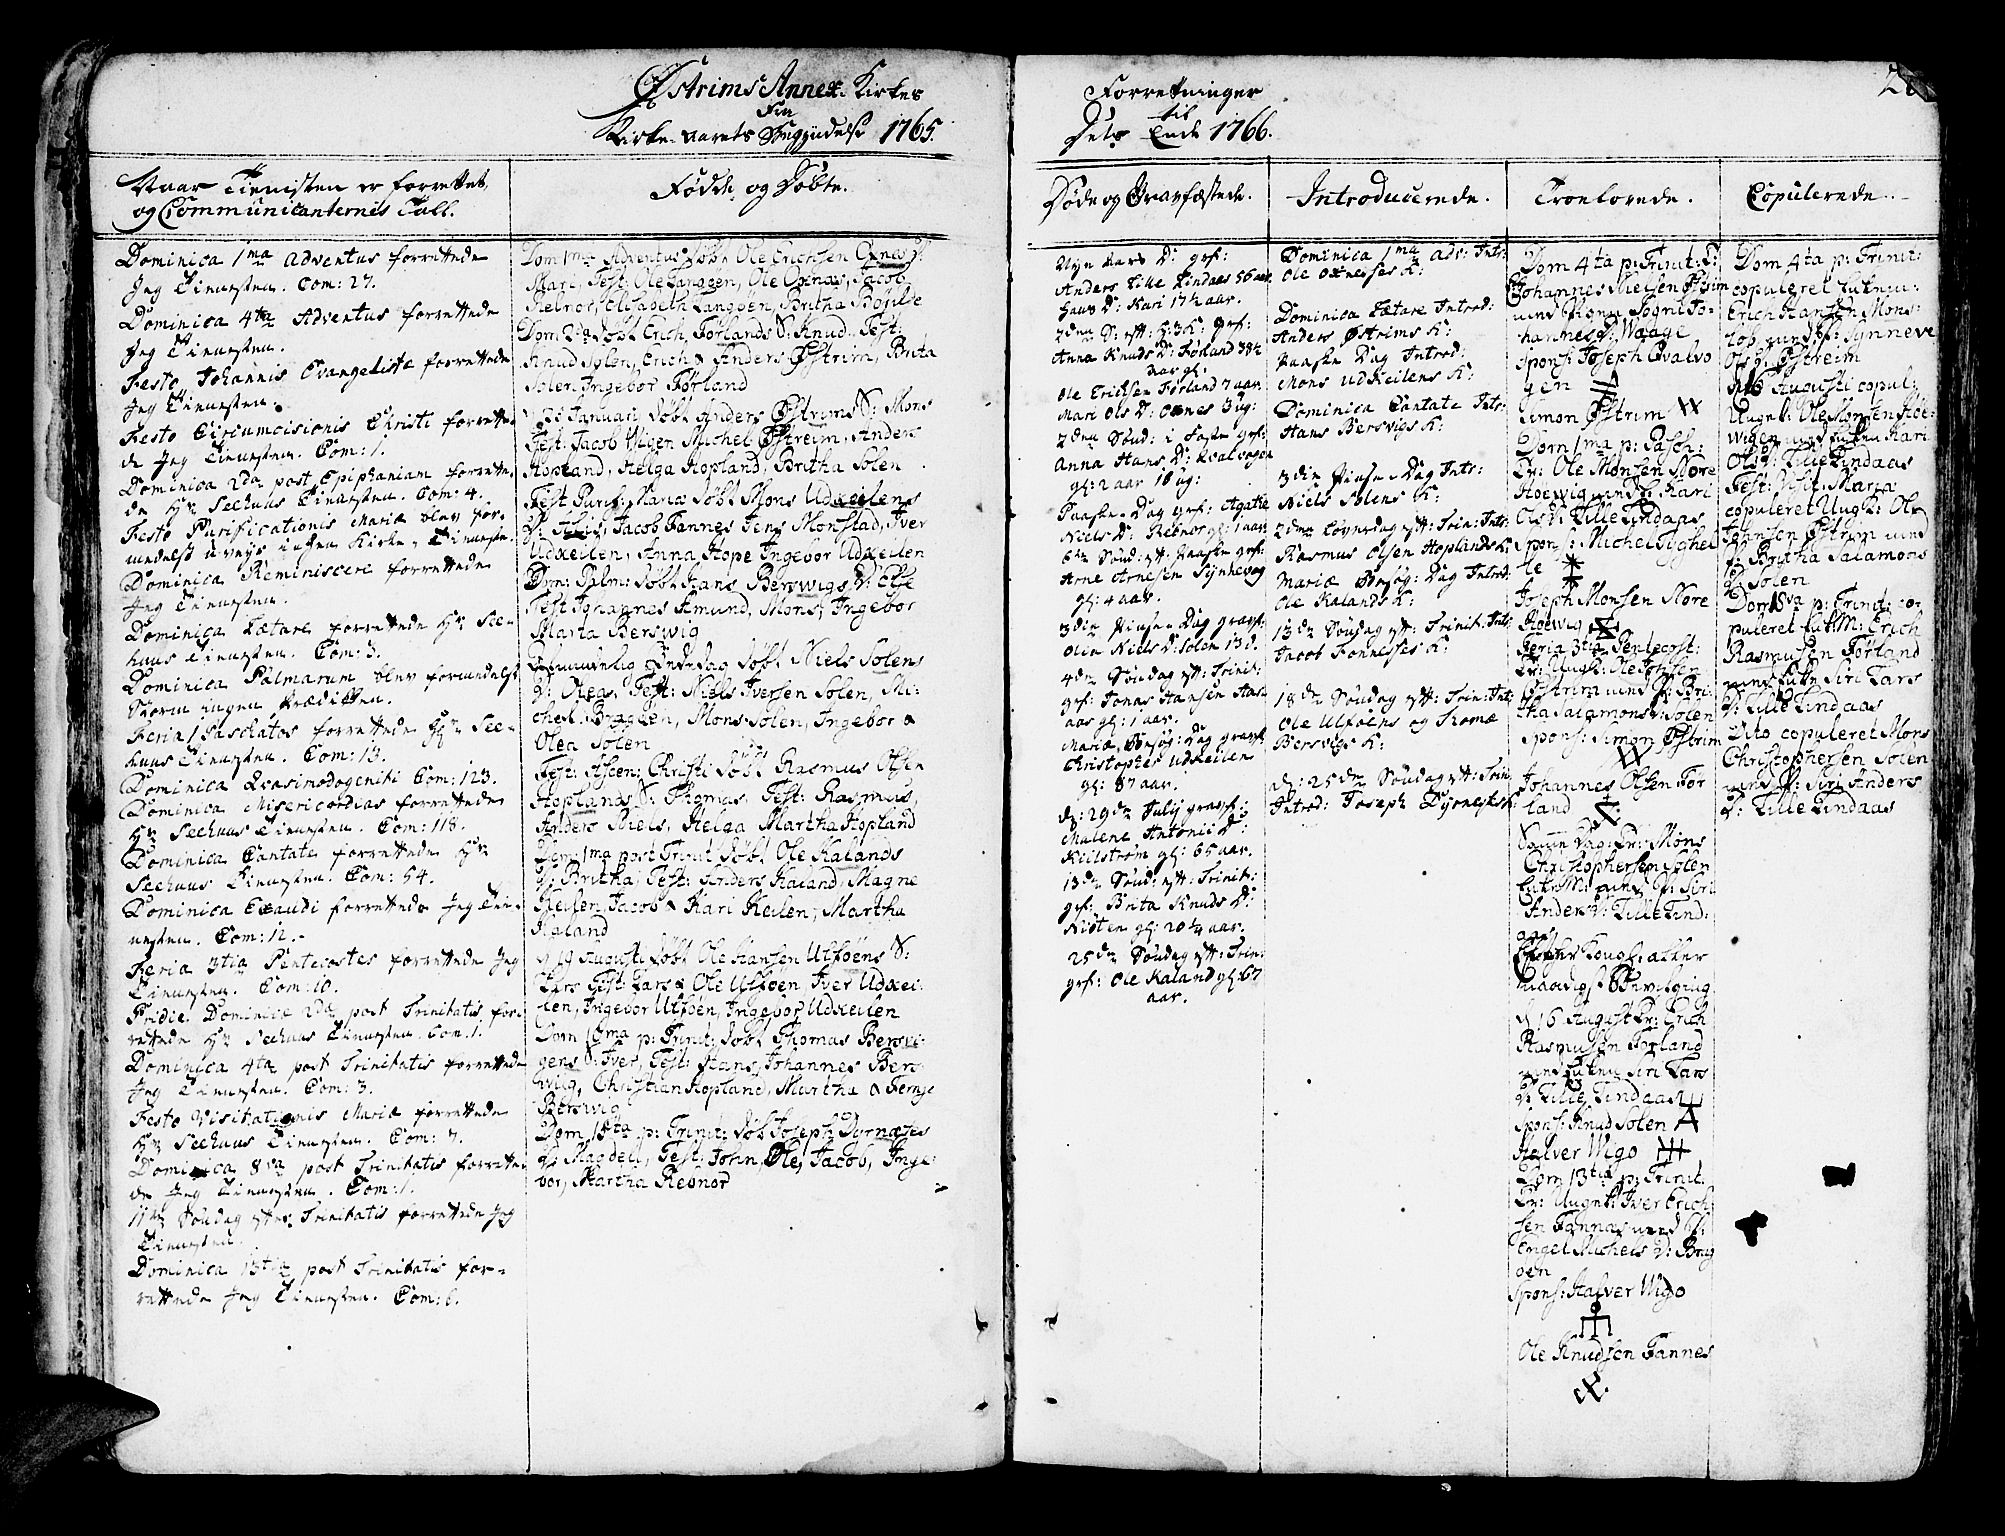 Østrims Annex-Kirkes
Fra
Kirke-Aarets Begyndelse 1765.
Naar Tienisten er forrettet,
og Communicanternes Tall.
Dominica 1ma Adventus forrettede
Jeg Tienesten. Com: 27.
Dominica 4ta Adventus forrettede
Jeg Tienesten.
Festo Johannis Evangelistæ forrettede
Jeg Tienesten.
Festo Circumcisionis Christi forrette-
de Jeg Tienesten. Com: 1.
Dominica 2da post Epiphaniam forrette-
de Hr Seehuus Tienesten. Com: 4.
Festo Purificationis Mariæ blev for-
medelst uveyr ingen Kirke-Tieneste.
Dominica Reminiscere forrettede
Jeg Tienesten.
Dominica Lætare forrettede Hr See-
huus Tienesten. Com: 3.
Dominica Palmarum blev formedelst
Storm ingen Prædiken.
Feria 1 Paschatos forrettede Hr See-
huus Tienesten. Com: 13.
Dominica Qvasimodogeniti Com: 123.
Dominica Misericordias forrettede
Hr Seehuus Tienesten. Com: 118.
Dominica Cantate forrettede Hr
Seehuus Tienesten. Com: 54.
Dominica Exaudi forrettede Jeg Tie-
nesten. Com: 12.
Feria 3tia Pentecostes forrettede Jeg
Tienesten. Com: 10.
Pridie Dominicæ 2da post Trinitatis for-
rettede Hr Seehuus Tienesten. Com: 1.
Dominica 4ta post Trinitatis forrettede
Jeg Tienesten. Com: 3.
Festo Visitationis Mariæ forrettede
Hr Seehuus Tienesten. Com: 7.
Dominica 8va post Trinitatis forrette-
de Jeg Tienesten. Com: 1.
11te Søndag efter Trinitatis forrettede Jeg
Tienesten.
Dominica 13tia post Trinitatis for-
rettede Jeg Tienesten. Com: 6.
Fødde og Døbte.
Dom 1ma Adventus døbt Ole Erichsen Oxnas D:
Mari, Test: Ole Langøen, Ole Oxnas, Jacob
Rebnor, Elisabeth Langøen, Britha
Dom 2da døbt Erich Førlands S: Knud. Test:
Knud Solen, Erich & Anders Østrim, Brita
Solen Ingebor Førland
Januarii døbt Anders Østrims S: Mons
Test: Jacob Wigen Michel Østreim, Anders
Hopland, Helga Hopland, Britha Solen
Fest Purif: Mariæ døbt Mons Udkeilens
D: Jacob Fannes Jens Monstad, Iver
Udkeilen, Anna Hope Ingebor Udkeilen
Dom: Palm: døbt Hans Berswigs D: Else
Test Johannes Amund, Mons, Ingebor
Marta Berswig
Almindelig Bededag døbt Niels Solens
D: Olea, Test: Niels Iversen Solen, Mi-
chel Bragøen, Mons Solen, Ingebor &
Olea Solen
Fest: Ascen: Christi døbt Rasmus Olsen
Hoplands S: Thomas. Test: Rasmus,
Anders Niels, Helga Martha Hopland
Dom 1ma post Trinit døbt Ole Kalands
D: Britha, Test: Anders Kaland, Magne
Keilen, Jacob & Kari Keilen, Martha
Kaland
d 19 Augusti døbt Ole Hansen Ulføens S:
Lars Test: Lars & Ole Ulføen, Iver Udkei-
len, Ingebor Ulføen, Ingebor Udkeilen
Dom 16ma p: Trinit: døbt Thomas Berswi-
gens S: Iver, Test: Hans, Johannes Bers-
wig, Christian Hopland, Martha &
Berswig
Dom 18ta p: Trinit: døbt Joseph Dyrnæses
D: Magdeli, Test: John, Ole, Jacob, Inge-
bor, Martha Rebnor
Forretninger
til
Dets Ende 1766.
Døde og Gravfæstede.
Nyn Aars D: grf:
Anders Lille Lindaas 56 aar
Hans D: Kari 17½ aar.
2den S: eft: H: 3K: grf:
Anna Knuds D: Førland 38½
aar gl:
Ole Erichsen Førland 7 aar
Mari Ols D: Oxnes 3 ug:
2den Sønd: i Faste grf:
Anna Hans D: Kvalvogen
gl: 2 aar 16 ug:
Paaske-Dag grf: Agathe
Niels D: Rebnor gl: 1 aar.
6te Sønd: eft: Paaske grf:
Arne Arnesen Synnevog
gl: 4 aar.
3die Pinse-Dag gravf:
Olea Niels D: Solen 13 d.
4de Søndag eft: Trinit:
grf: Jonas Hansen Aas-
aas gl: 1 aar.
Mariæ Besøg: Dag gravf:
Christopher Udkeilen
gl: 87 aar.
d: 29de Julij gravf:
Malene Antonii D:
Kiilstrøm gl: 65 aar.
13de Sønd: eft: Trinit:
grf: Brita Knuds D:
Kiøten gl: 20¼ aar.
25de Søndag eft: Trin:
grf: Ole Kaland gl: 67
aar.
Introducerede.
Dominica 1ma Adv: Intr:
Ole Oxneses K:
Dominica Lætare Introd:
Anders Østrims K:
Paaske Dag Introd:
Mons Udkeilens K:
Dominica Cantate Intr:
Hans Bersvigs K:
3die Pinse-Dag Intr:
Niels Solens K:
2den Søndag eft: Trin: Intr:
Rasmus Olsen Hoplands K:
Mariæ Besøg: Dag Introd:
Ole Kalands K:
13de Søndag eft: Trinit: Intr:
Jacob Fonneses K:
18de Søndag eft: Trin: Intr:
Ole Ulføens og Thomæ
Bersvigs K:
d: 25de Søndag eft: Trin:
Introd: Joseph Dyrneses K:
Troelovede.
Dom 4ta p: Trinit: Tr:
Johannes Nielsen Østrim
med Pigen Sogni Jo-
hannes D: Waage
Spons: Joseph Qvalvo
gen
Simon Østrim
Dom 1ma p: Pasch:
Tr: Ole Monsen Nore
Høewig med P: Kari
Ols D: Lille Lindaas
Spons: Michel Tyghel
le
Joseph Monsen Nore
Høewig
Feria 3tia Pentecost:
Tr: Ungk: Ole Johsen
Østrim med P: Bri-
tha Salamons D: Solen
Spons: Simon Østrim
Johannes Olsen Før
land
Samme Dag Tr: Mons
Christophersen Solen
Enkem: med P: Siri
Anders D: Lille Lind-
aas
Efter Kongl: aller
naadigst Bevilgning
d 16 August Tr: Erich
Rasmusen Førland
med Enken Siri Lars
D: Lille Lindaas
Spons: Knud Solen
Halver Wigo
Dom 13tia p: Trinit.
Tr: Ungk: Iver Erich
sen Fannas med P:
Engel Michels D: Brag
øen
Spons: Halver Wigo
Ole Knudsen Fannes
Copulerede.
Dom 4ta p: Trinit:
copuleret Enkem:
Erich Hansen Mons-
løb med P: Synneve
Ols D: Østreim
d 6 Augusti copul:
Ungk: Ole Monsen Høe-
wigen med Enken Kari
Ols D: Lille Lindaas
Fest: Visit: Maria
copuleret Ungk: Ole
Johnsen Østrim med
P: Britha Salamons
D: Solen
Dom 8va p: Trinit: co-
puleret Enkm: Erich
Rasmusen Førland
med Enken Siri Lars
D: Lille Lindaas
Dito copuleret Mons
Christophersen Solen
med P: Siri Anders
D: Lille Lindaas